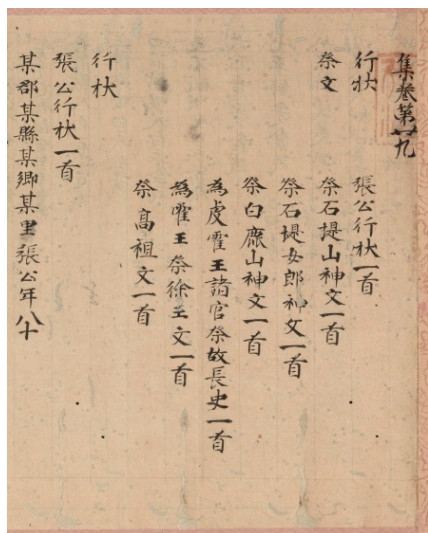 集卷第廿九
行狀 張公行狀一首
祭文 祭石堤山神文一首
祭石堤女郎神文一首
祭白鹿山神文一首
為虔霍王諸官祭故長史一首
為霍王祭徐王文一首
祭高祖文一首
行狀
張公行狀一首
某郡某縣某鄉某里張公年八十